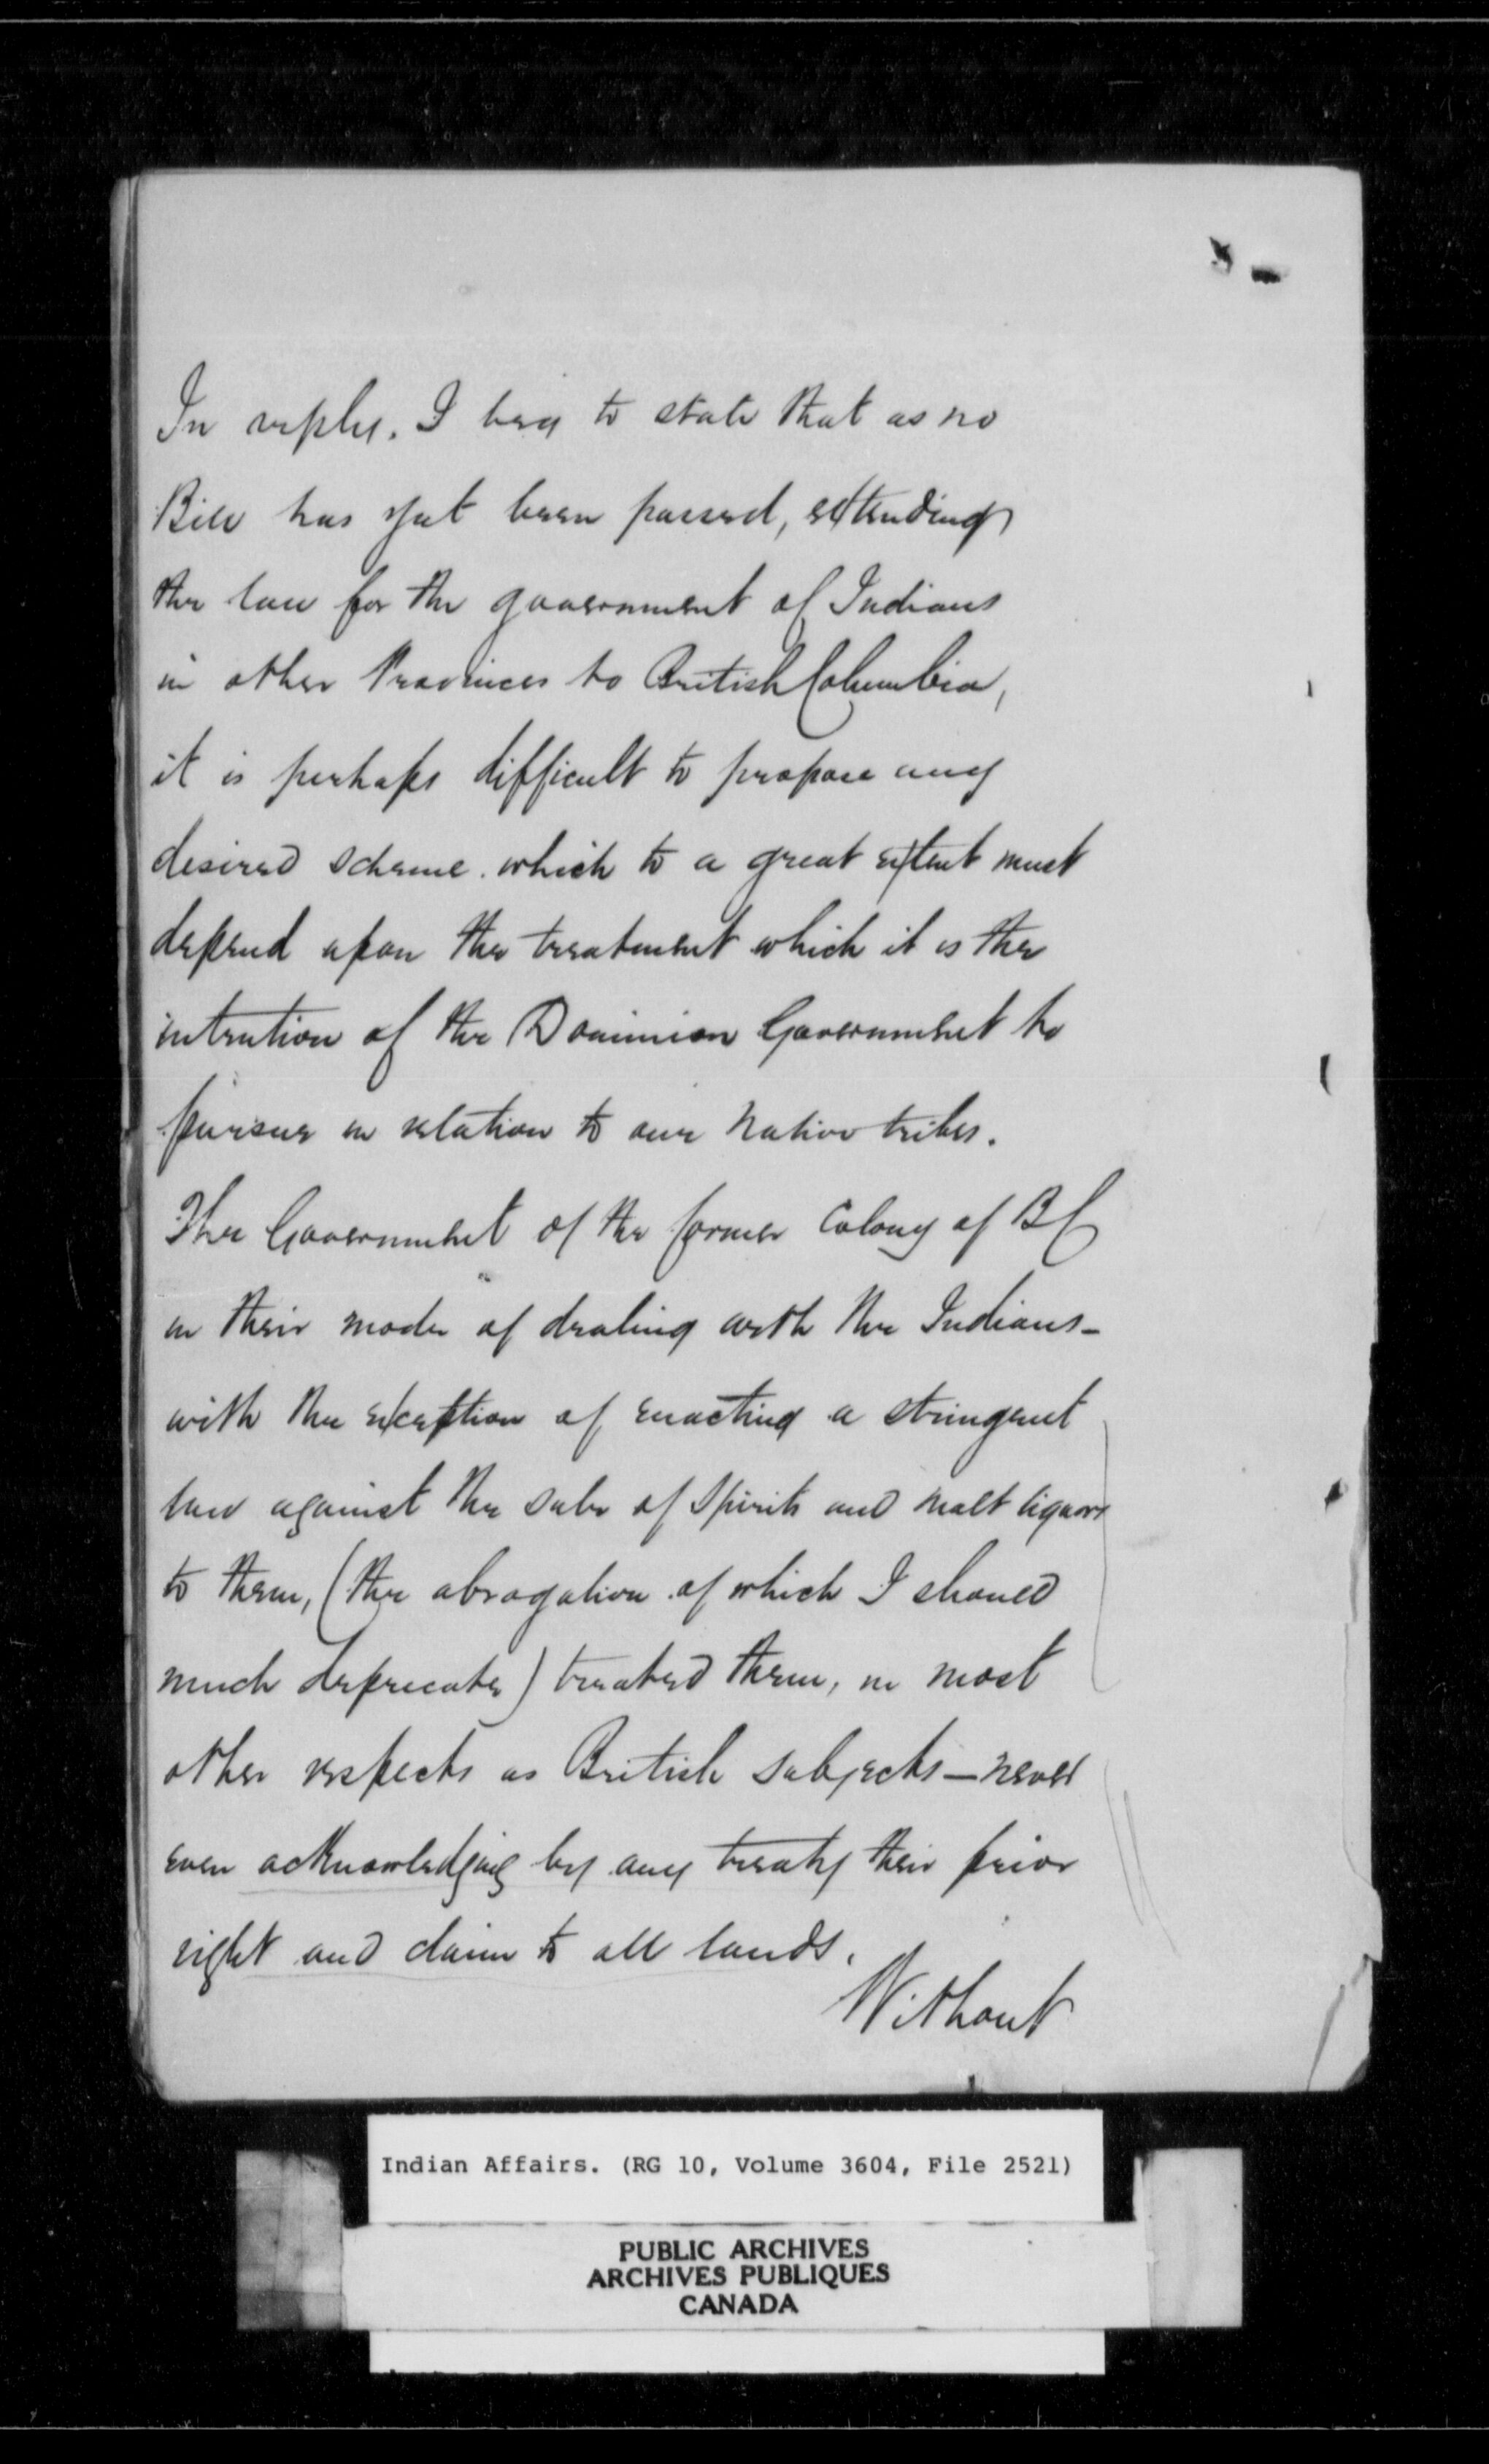 In reply, I beg to state that as no
Bill has yet been passed, extending
the law for the government of Indians
in other Provinces to British Columbia,
it is perhaps difficult to propose any
desired scheme which to a great extent must
depend upon the treatment which it is the
intention of the Dominion Government to
pursue in relation to our Native tribes.
The Government of the former Colony of BC
in their mode of dealing with the Indians-
with the exception of enacting a stringent
law against the sale of Spirits and malt liquors
to them, (the abrogation of which I should
much deprecate) treated them, in most
other respects as British subjects - never
even acknowledging by any treaty their prior
right and claim to all lands.
Without
Indian Affairs. (RG 10, Volume 3604, File 2521)
PUBLIC ARCHIVES
ARCHIVES PUBLIQUES
CANADA